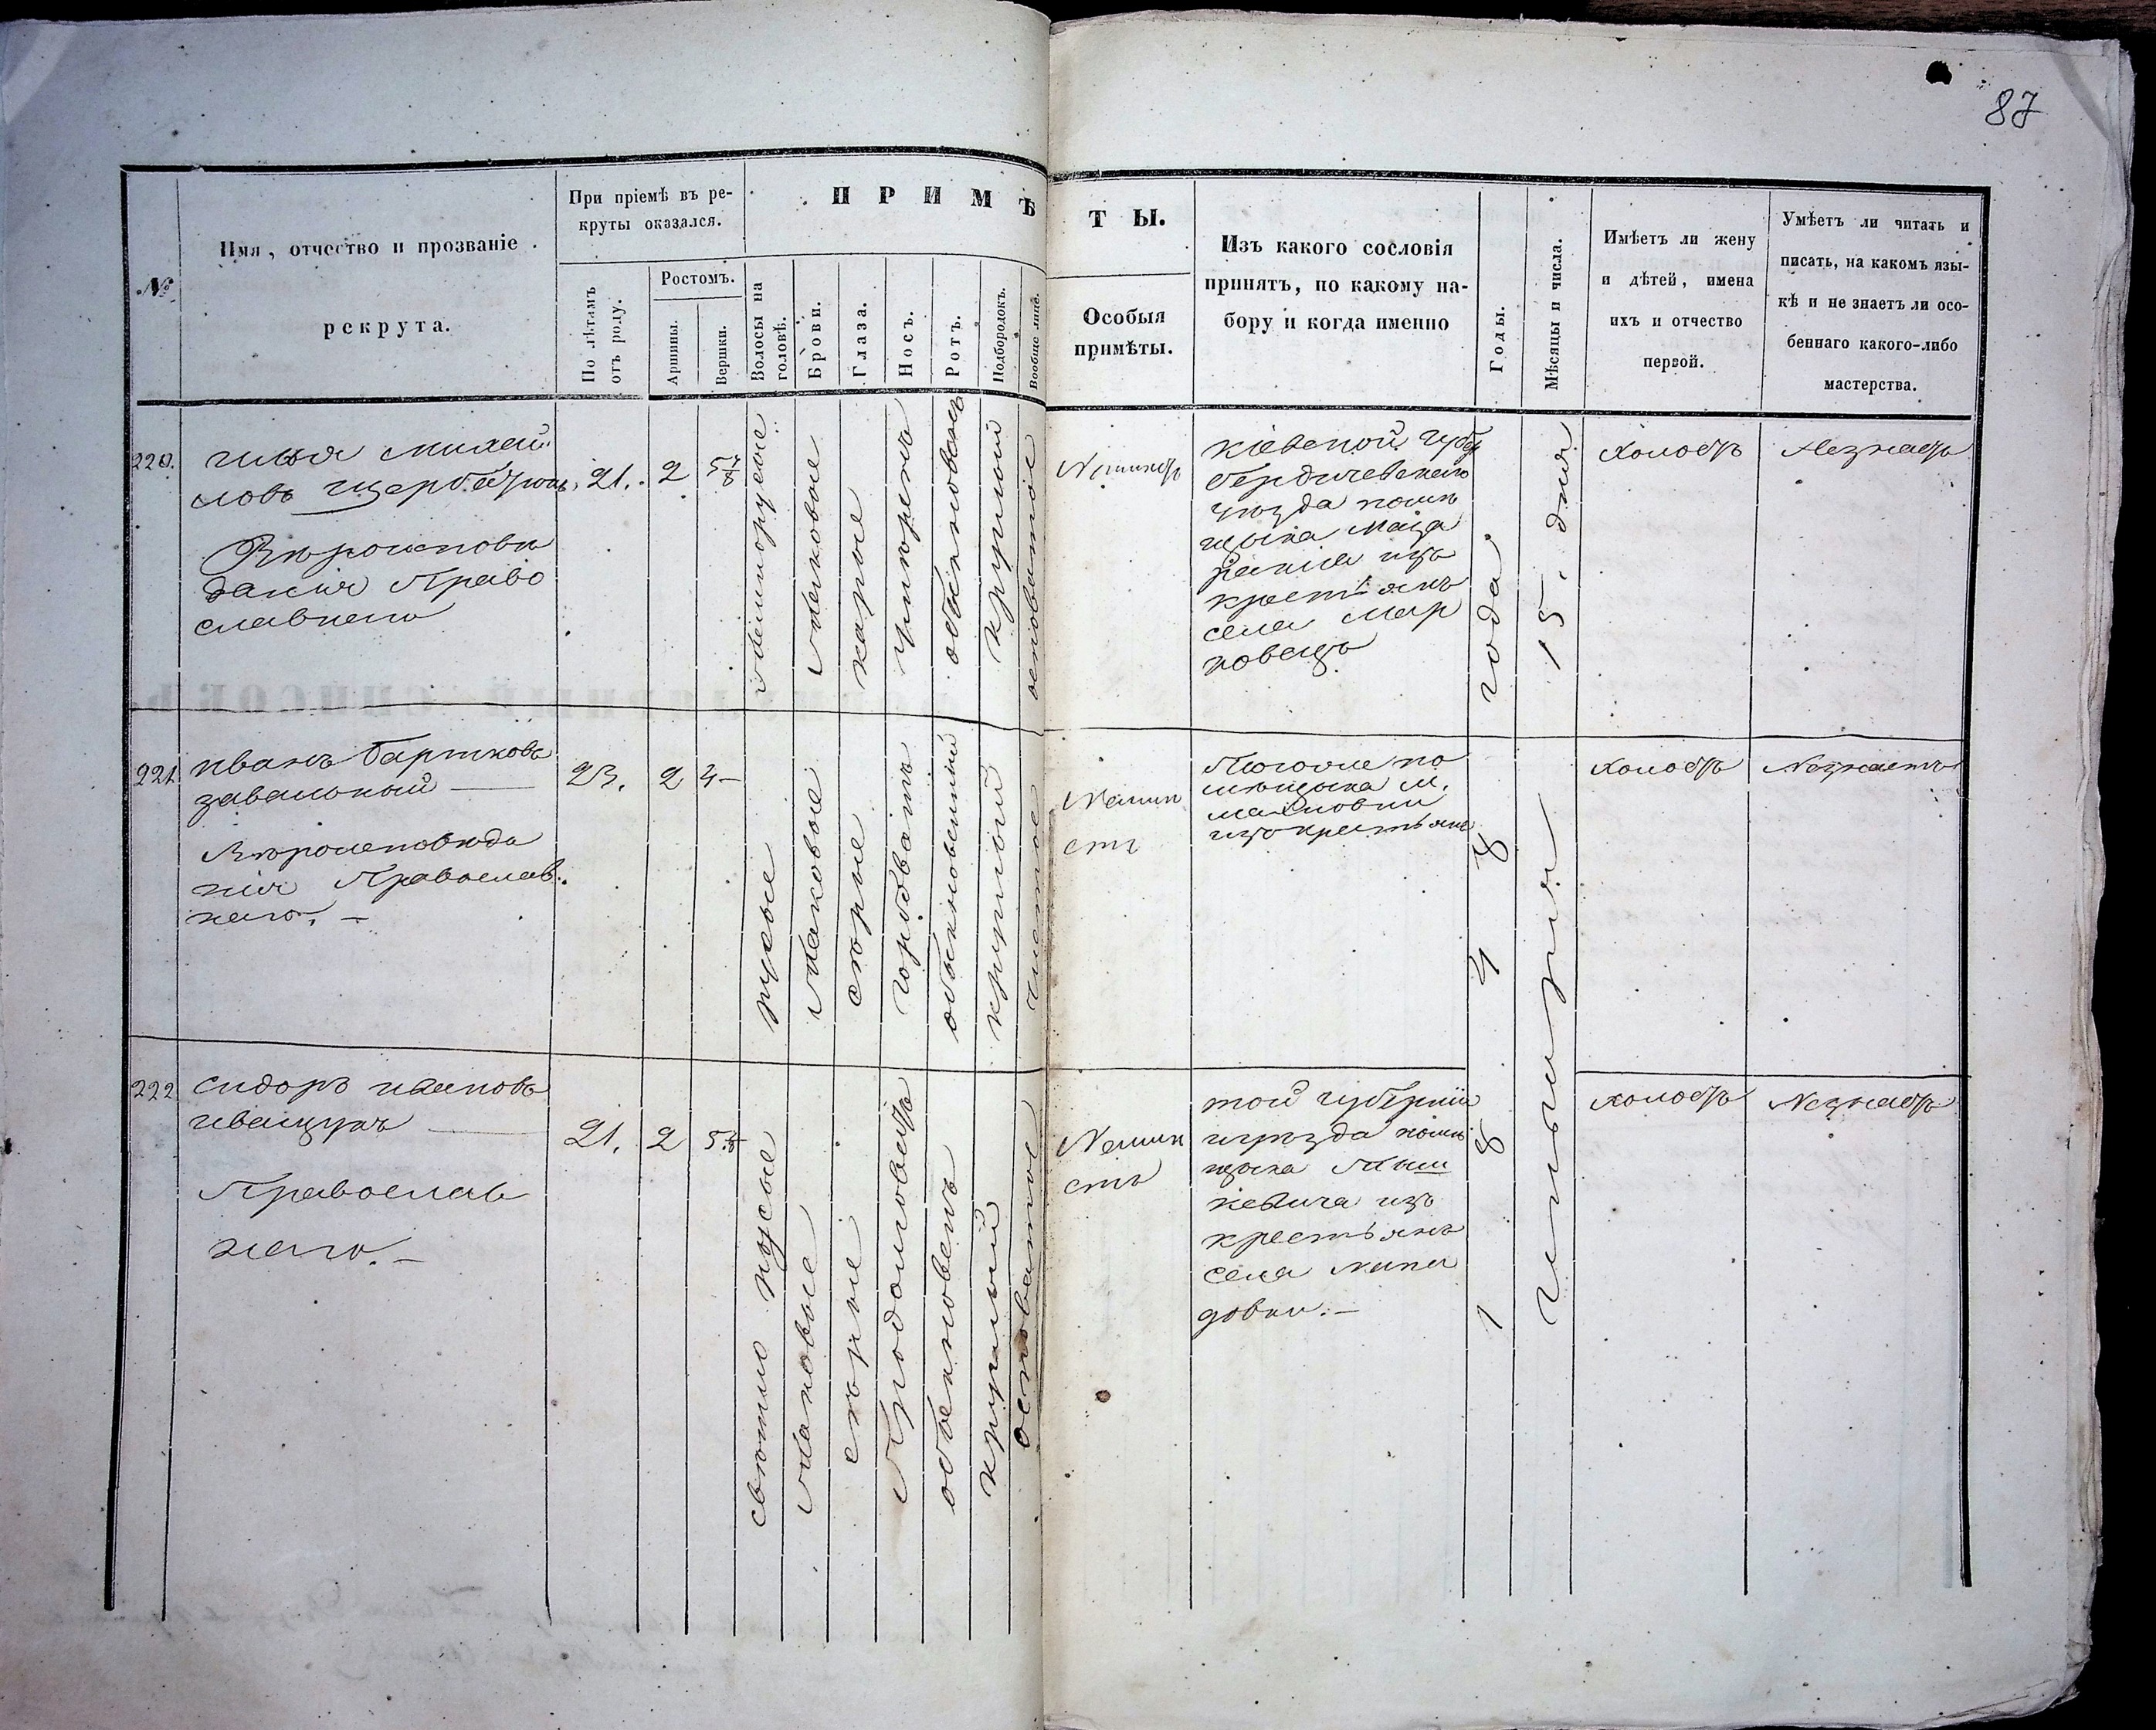 87
№
Имя, отчество и прозваніе
рекрута.
При пріемѣ въ ре-
круты оказался.
По лѣтамъ
отъ роду.
Ростомъ.
Аршины.
Вершки.
ПРИМѢ
Волосы на
головѣ.
Брови.
Глаза.
Носъ.
Ротъ.
Подбородокъ.
Вообще лице.
ТЫ.
Особыя
примѣты.
Изъ какого сословія
принятъ, по какому на-
бору и когда именно
Годы.
Мѣсяцы и числа.
Имѣетъ ли жену
и дѣтей, имена
ихъ и отчество
первой.
Умѣетъ ли читать и
писать, на какомъ язы-
кѣ и не знаетъ ли осо-
беннаго какого-либо
мастерства.
220.
илья михай
ловъ
Вѣроисповѣ
данія Право
славнаго
21.
2
5 1/8
темнорусые
таковые
карые
умѣренъ
обыкновенъ
круглый
осповатое
Кіевской губер
бердичевскаго
уѣзда помѣ
щика
изъ
крестьянъ
села Мар
ковецъ
холостъ
Незнаетъ
221.
иванъ бартковъ
завальный
Вѣроисповѣда
нія Православ
наго. —
23.
2
4 —
русые
таковые
сѣрые
горбоватъ
обыкновенный
круглый
чистое
Неимѣ
етъ
по
мѣщика м.
махновки
изъ крестьянъ
холостъ
Незнаетъ
222
сидоръ
иващукъ
Православ
наго. —
21.
2
свѣтло русые
таковые
сѣрые
Продолговатъ
обыкновенъ
круглый
осповатое
Неимѣ
етъ
той губерніи
и уѣзда помѣ
щика
изъ
крестьянъ
села
довки. —
холостъ
Незнаетъ
184 года
15. дня